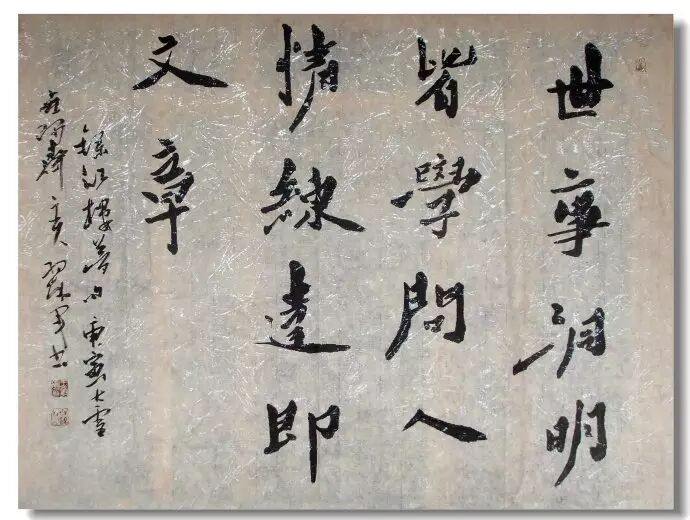 世事洞明
皆學問人
情練達即
文章
錄紅樓夢句庚寅大雪
齋